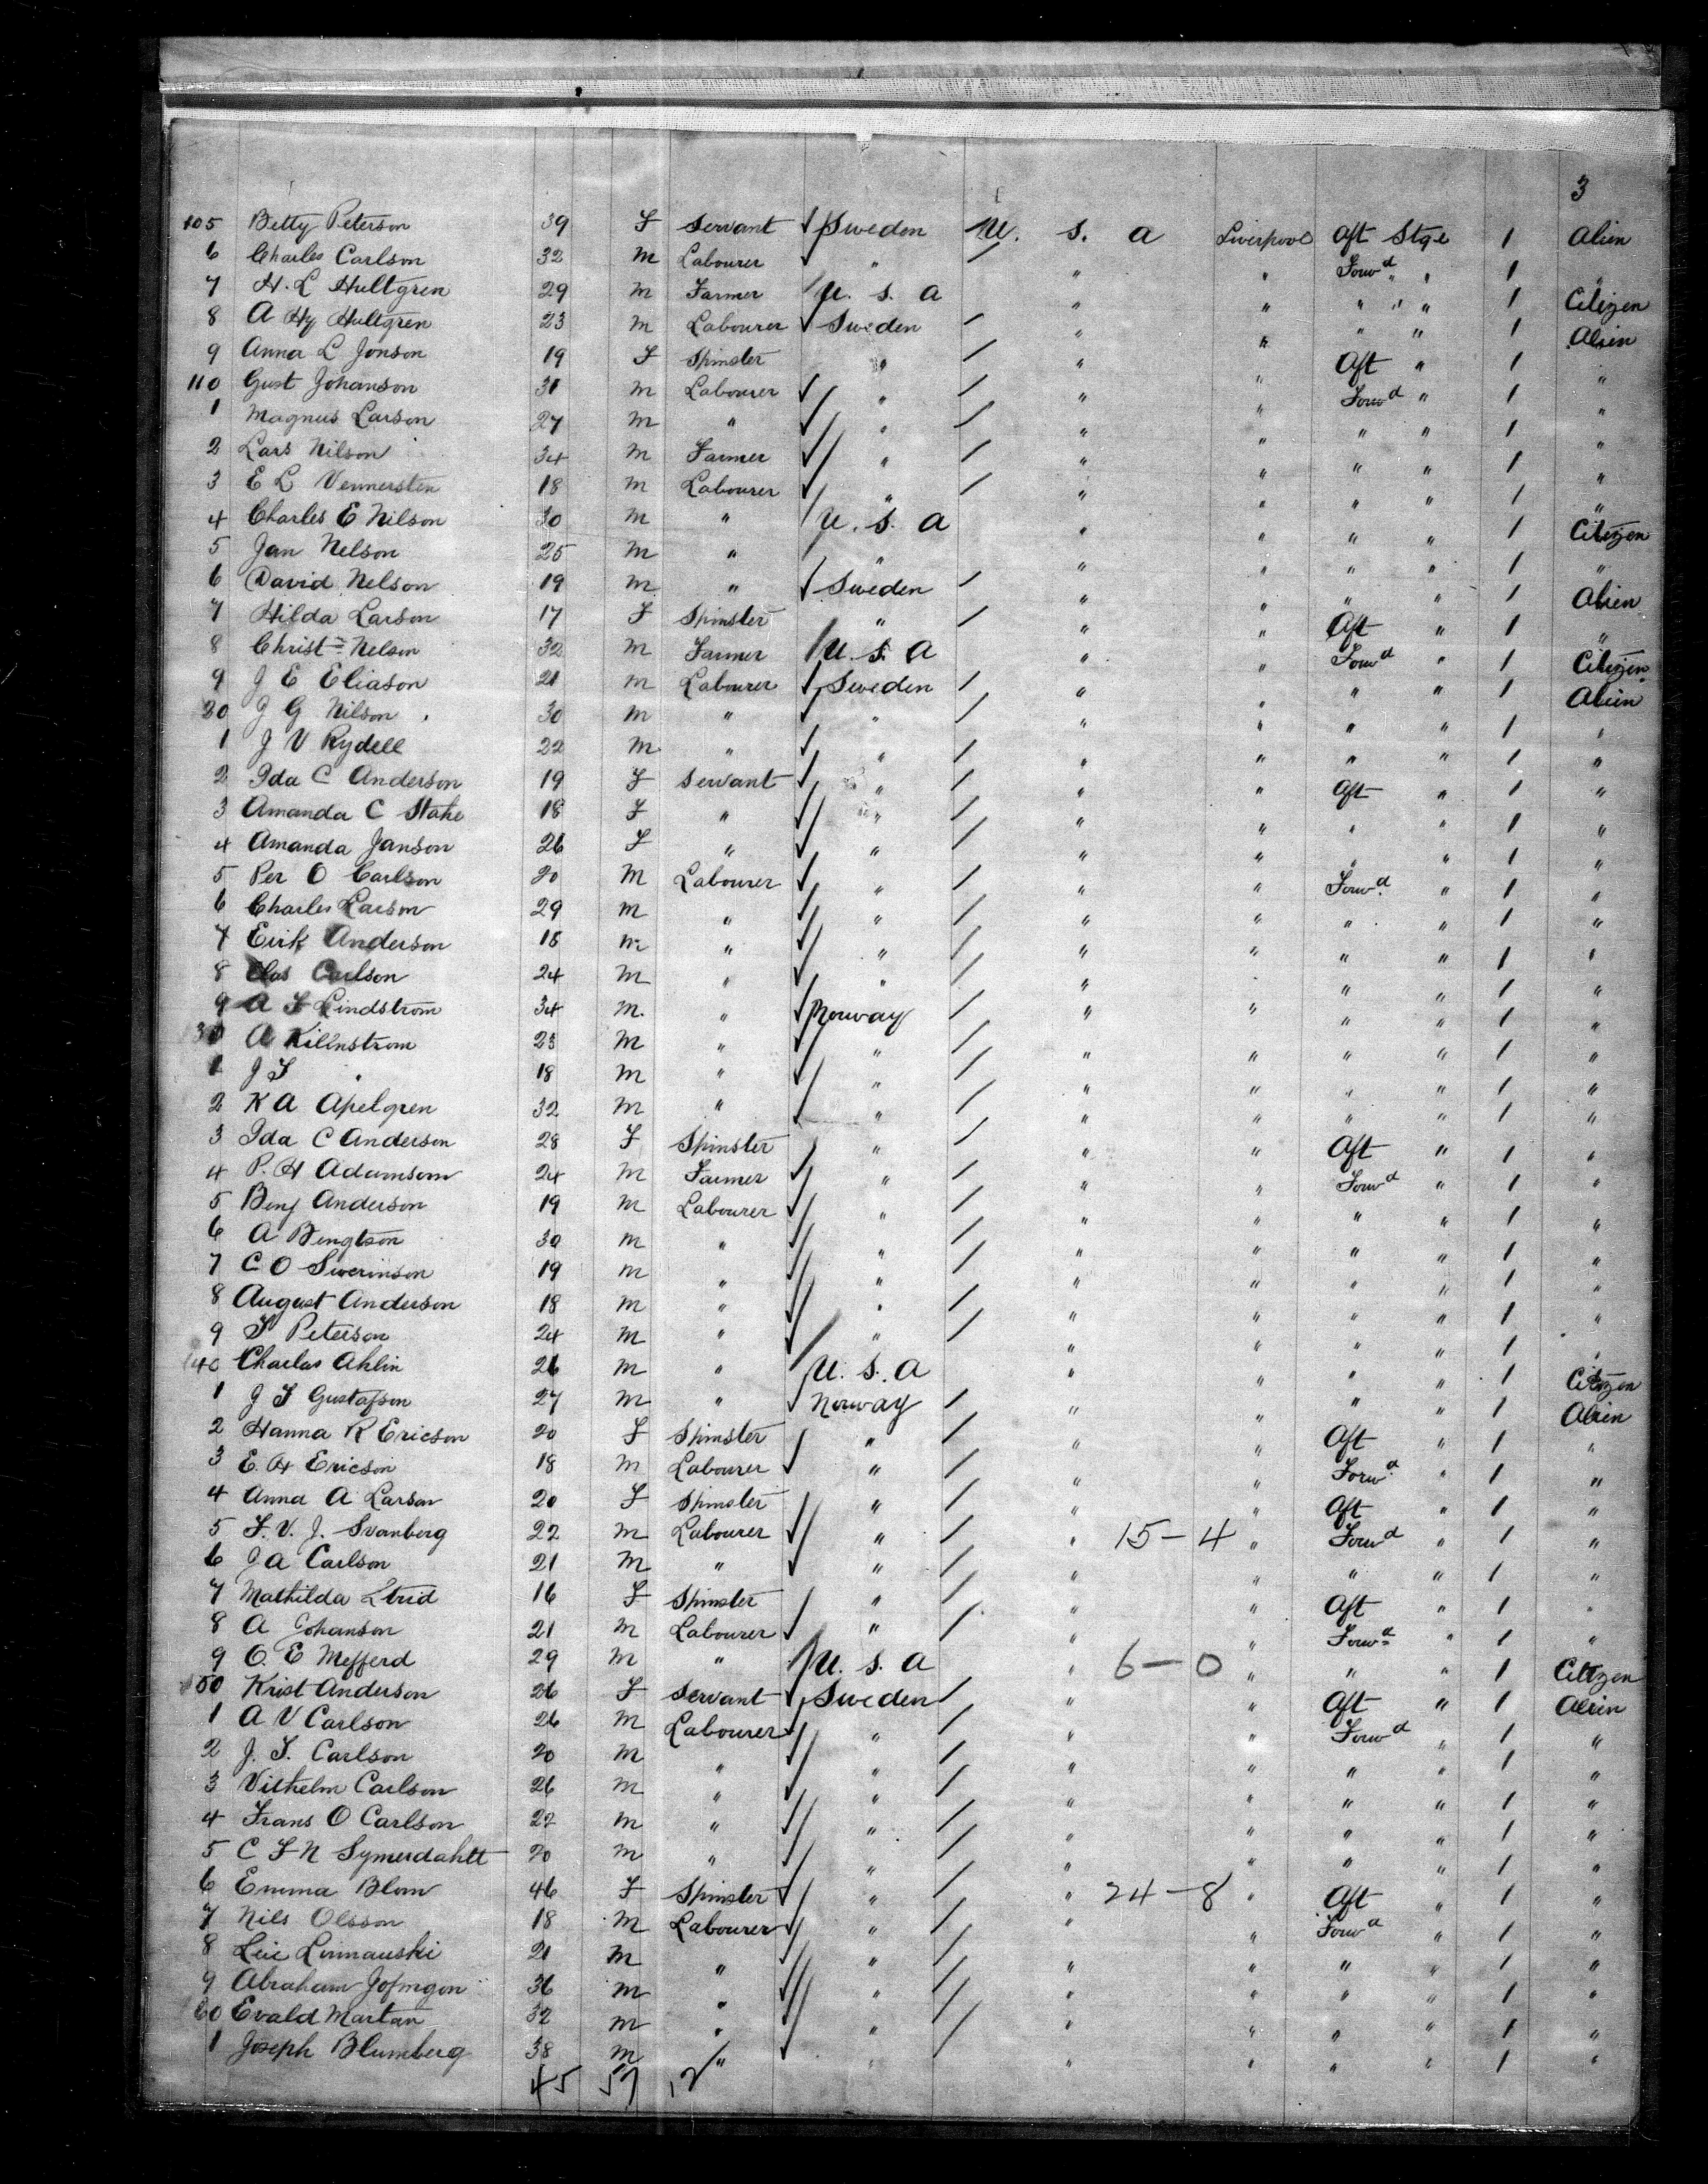 3
105 Betty Peterson 39 F Servant Sweden U. S. A Liverpool Aft Stge 1 Alien
6 Charles Carlson 32 M Labourer " " " Forwd " " 1 "
7 H. L Hultgren 29 M Farmer U. S. A " " " " " 1 Citizen
8 A Hy Hultgren 23 M Labourer Sweden " " " " 1 Alien
9 Anna L Jonson 19 F Spinster " " " Aft " 1 "
110 Gust Johanson 31 M Labourer " " " Forwd " 1 "
1 Magnus Larson 27 M " " " " " " 1 "
2 Lars Nilson 34 M Farmer " " " " " 1 "
3 E L Vennersten 18 M Labourer " " " " " 1 "
4 Charles E Nilson 30 M " U. S. A " " " " 1 Citizen
5 Jan Nelson 25 M " " " " " " 1 "
6 David Nelson 19 M " Sweden " " " " 1 Alien
7 Hilda Larson 17 F Spinster " " " Aft " 1 "
8 Christn Nelson 32 M Farmer U. S. A " " Forwd " 1 Citizen
9 J E Eliason 21 M Labourer Sweden " " " " 1 Alien
20 J G Nilson 30 M " " " " " " 1 "
1 J V Rydell 22 M " " " " " " 1 "
2 Ida C Anderson 19 F Servant " " " Aft " 1 "
3 Amanda C Stake 18 F " " " " " " 1 "
4 Amanda Janson 26 F " " " " " " 1 "
5 Per O Carlson 20 M Labourer " " " Forwd " 1 "
6 Charles Larson 29 M " " " " " " 1 "
7 Eirk Anderson 18 M " " " " " " 1 "
8 Clas Carlson 24 M " " " " " " 1 "
9 A F Lindstrom 34 M. " Norway " " " " 1 "
30 A Killnstrom 23 M " " " " " " 1 "
1 J F " 18 M " " " " " " 1 "
2 K A Apelgren 32 M " " " " " " 1 "
3 Ida C Anderson 28 F Spinster " " " Aft " 1 "
4 P. H Adamson 24 M Farmer " " " Forwd " 1 "
5 Benj Anderson 19 M Labourer " " " " " 1 "
6 A Bengtson 30 M " " " " " " 1 "
7 C O Swerinson 19 M " " " " " " 1 "
8 August Anderson 18 M " " " " " " 1 "
9 F Peterson 24 M " " " " " " 1 "
140 Charlas Ahlin 26 M " U. S. A " " " " 1 Citizen
1 J F Gustafson 27 M " Norway " " " " 1 Alien
2 Hanna R Ericson 20 F Spinster " " " Aft " 1 "
3 E. H Ericson 18 M Labourer " " " Forwd " 1 "
4 Anna A Larson 20 F Spinster " " " Aft " 1 "
5 F. V. J. Svanberg 22 M Labourer " " 15-4 " Forwd " 1 "
6 J A Carlson 21 M " " " " " " 1 "
7 Mathilda Strid 16 F Spinster " " " Aft " 1 "
8 A Johanson 21 M Labourer " " " Forwd " 1 "
9 O. E Mefferd 29 M " U. S. A " 6-0 " " " 1 Citizen
150 Krist Anderson 26 F Servant Sweden " " Aft " 1 Alien
1 A V Carlson 26 M Labourer " " " Forwd " 1 "
2 J. F. Carlson 20 M " " " " " " 1 "
3 Vilhelm Carlson 26 M " " " " " " 1 "
4 Frans O Carlson 22 M " " " " " " 1 "
5 C F N Symerdahlt 20 M " " " " " " 1 "
6 Emma Blom 46 F Spinster " " 24-8 " Aft " 1 "
7 Nils Olsson 18 M Labourer " " " Forwd " 1 "
8 21 M " " " " " " 1 "
9 Abraham 36 M " " " " " " 1 "
60 Evald Martan 32 M " " " " " " 1 "
1 Joseph Blumberg 38 M " " " " " " 1 "
45 57 12